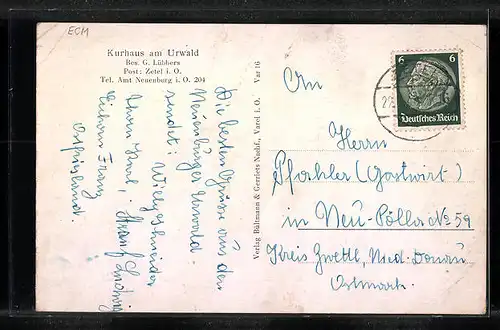 ECM
Kurhaus am Urwald
Bes. G. Lübbers
Post: Zetel i. O.
Tel. Amt Neuenburg i. O. 204
Die besten Grüße aus dem
Neuenburger Urwald
sendet:
Franz
Ostfriesland
Ludwig
Verlag Bültmann & Gerriets Nachf., Varel i. O. Var 16
6 6
Deutsches Reich
An
Herrn
Pfahler (Gastwirt)
in Neu-Pölla No 59
Kreis Zwettl, Nied. Donau
Ostmark.